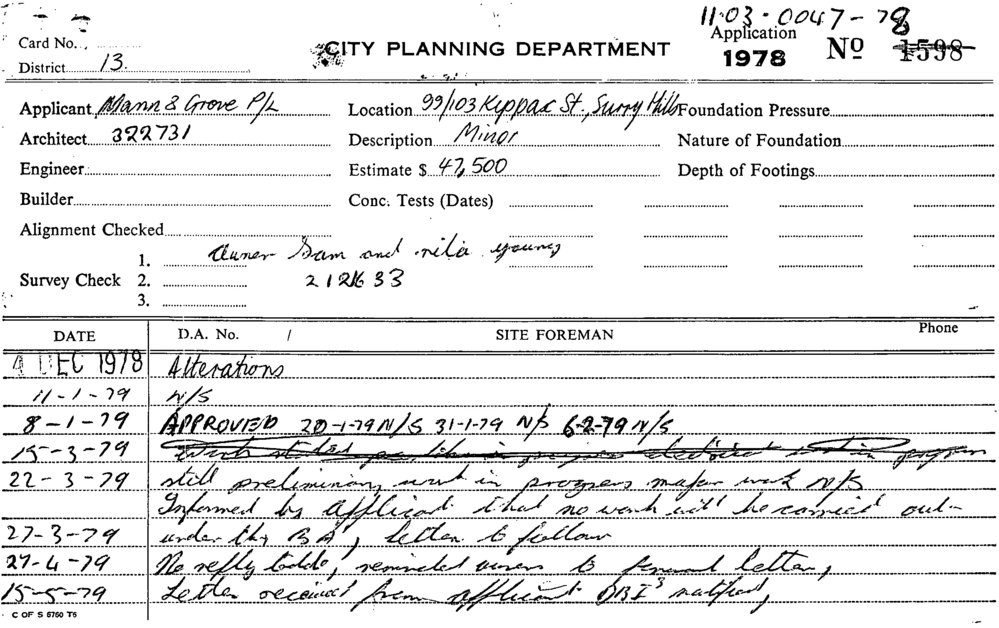 11·03·0047-78
Card No.
CITY PLANNING DEPARTMENT
Application
1978 No 1598
District 13.
Applicant Mann & Grove P/L Location 99/103 Kippax St., Surry Hills Foundation Pressure
Architect 322731 Description Minor Nature of Foundation
Engineer Estimate $ 47,500 Depth of Footings
Builder Conc. Tests (Dates)
Alignment Checked
1. Owner Sam and nita young
Survey Check 2. 212633
3.
DATE D.A. No. / SITE FOREMAN Phone
4 DEC 1978 Alterations
11-1-79 N/S
8-1-79 APPROVED 20-1-79 N/S 31-1-79 N/S 6-2-79 N/S
15-3-79 in progress
22-3-79 still preliminary work in progress major work N/S
Informed by applicant that no work will be carried out
27-3-79 under this BA, letter to follow
27-4-79 No reply to date, reminded owners to forward letter,
15-5-79 Letter received from applicant DBI notified,
C OF S 6760 T5